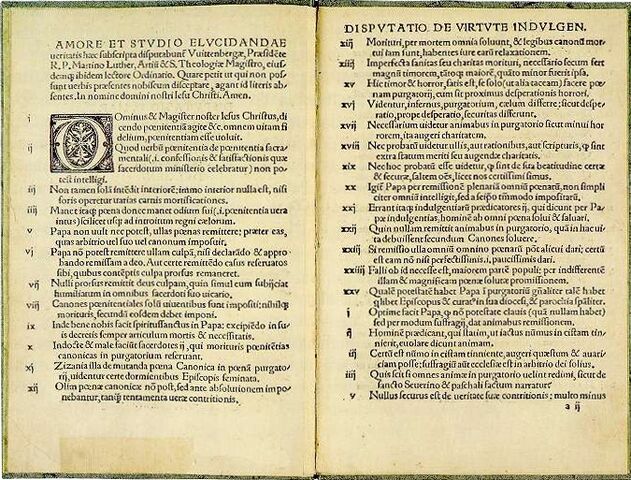 AMORE ET STVDIO ELVCIDANDAE
ueritatis hæc subscripta disputabunť Vuittenbergæ, Præsidēte
R. P. Martino Luther, Artiū & S. Theologiæ Magistro, eius-
demq; ibidem lectore Ordinario. Quare petit ut qui non pos-
sunt uerbis præsentes nobiscum disceptare, agant id literis ab-
sentes. In nomine domini nostri Iesu Christi. Amen.
i DOminus & Magister noster Iesus Christus, di-
cendo pœnitentiā agite &c. omnem uitam fi-
delium, pœnitentiam esse uoluit.
ij Quod uerbū pœnitentia de pœnitentia sacra-
mentali (.i. confessionis & satisfactionis quæ
sacerdotum ministerio celebratur) non po-
test intelligi.
iij Non tamen solā intēdit interiorē: immo interior nulla est, nisi
foris operetur uarias carnis mortificationes.
iiij Manet itaq; pœna donec manet odium sui (.i. pœnitentia uera
intus) scilicet usq; ad introitum regni cœlorum.
v Papa non uult nec potest, ullas pœnas remittere: præter eas,
quas arbitrio uel suo uel canonum imposuit.
vj Papa nō potest remittere ullam culpā, nisi declarādo & appro-
bando remissam a deo. Aut certe remittēdo casus reseruatos
sibi, quibus contēptis culpa prorsus remaneret.
vij Nulli prorsus remittit deus culpam, quin simul eum subijciat
humiliatum in omnibus sacerdoti suo uicario.
viij Canones pœnitentiales solū uiuentibus sunt impositi: nihilq;
morituris, secundū eosdem debet imponi.
ix Inde bene nobis facit spiritussanctus in Papa: excipiēdo in su-
is decretis semper articulum mortis & necessitatis.
x Indocte & male faciūt sacerdotes ij, qui morituris pœnitētias
canonicas in purgatorium reseruant.
xj Zizania illa de mutanda pœna Canonica in pœnā purgato-
rij, uidentur certe dormientibus Episcopis seminata.
xij Olim pœnæ canonicæ nō post, sed ante absolutionem impo-
nebantur, tanq̄ tentamenta ueræ contritionis.
DISPVTATIO DE VIRTVTE INDVLGEN.
xiij Morituri, per mortem omnia soluunt, & legibus canonū mor-
tui iam sunt, habentes iure earū relaxationem.
xiiij Imperfecta sanitas seu charitas morituri, necessario secum fert
magnū timorem, tātoq; maiorē, quāto minor fuerit ipsa.
xv Hic timor & horror, satis est, se solo (ut alia taceam) facere pœ-
nam purgatorij, cum sit proximus desperationis horrori.
xvj Videntur, infernus, purgatorium, cælum differre: sicut despe-
ratio, prope desperatio, securitas differunt.
xvij Necessarium uidetur animabus in purgatorio sicut minui hor-
rorem, ita augeri charitatem.
xviij Nec probatū uidetur ullis, aut rationibus, aut scripturis, q̄ sint
extra statum meriti seu augendæ charitatis.
xix Nec hoc probatū esse uidetur, q̄ sint de sua beatitudine certæ
& securæ, saltem oēs, licet nos certissimi simus.
xx Igitur Papa per remissionē plenariā omniū pœnarū, non simpli-
citer omniū intelligit, sed a seipso tātūmodo impositarū.
xxj Errant itaq; indulgentiarū prædicatores ij, qui dicunt per Pa-
pæ indulgentias, hominē ab omni pœna solui & saluari.
xxij Quin nullam remittit animabus in purgatorio, quā in hac ui-
ta debuissent secundum Canones soluere.
xxiij Si remissio ulla omniū omnino pœnarū pōt alicui dari; certū
est eam nō nisi perfectissimis .i. paucissimis dari.
xxiiij Falli ob id necesse est, maiorem partē populi: per indifferentē
illam & magnificam pœnæ solutæ promissionem.
xxv Qualē potestatē habet Papa ī purgatoriū gn̄aliter: talē habet
q̄libet Episcopus & curat9 in sua diocesi, & parochia sp̄āliter.
i Optime facit Papa, q̄ nō potestate clauis (quā nullam habet)
sed per modum suffragij, dat animabus remissionem.
ij Hominē prædicant, qui statim, ut iactus nūmus in cistam tin-
nierit, euolare dicunt animam.
iij Certū est nūmo in cistam tinniente, augeri quæstum & auari-
ciam posse: suffragiū aūt ecclesiæ est in arbitrio dei solius.
iiij Quis scit si omnes animæ in purgatorio uelint redimi, sicut de
sancto Seuerino & paschali factum narratur.
v Nullus securus est de ueritate suæ contritionis; multo minus
a ij